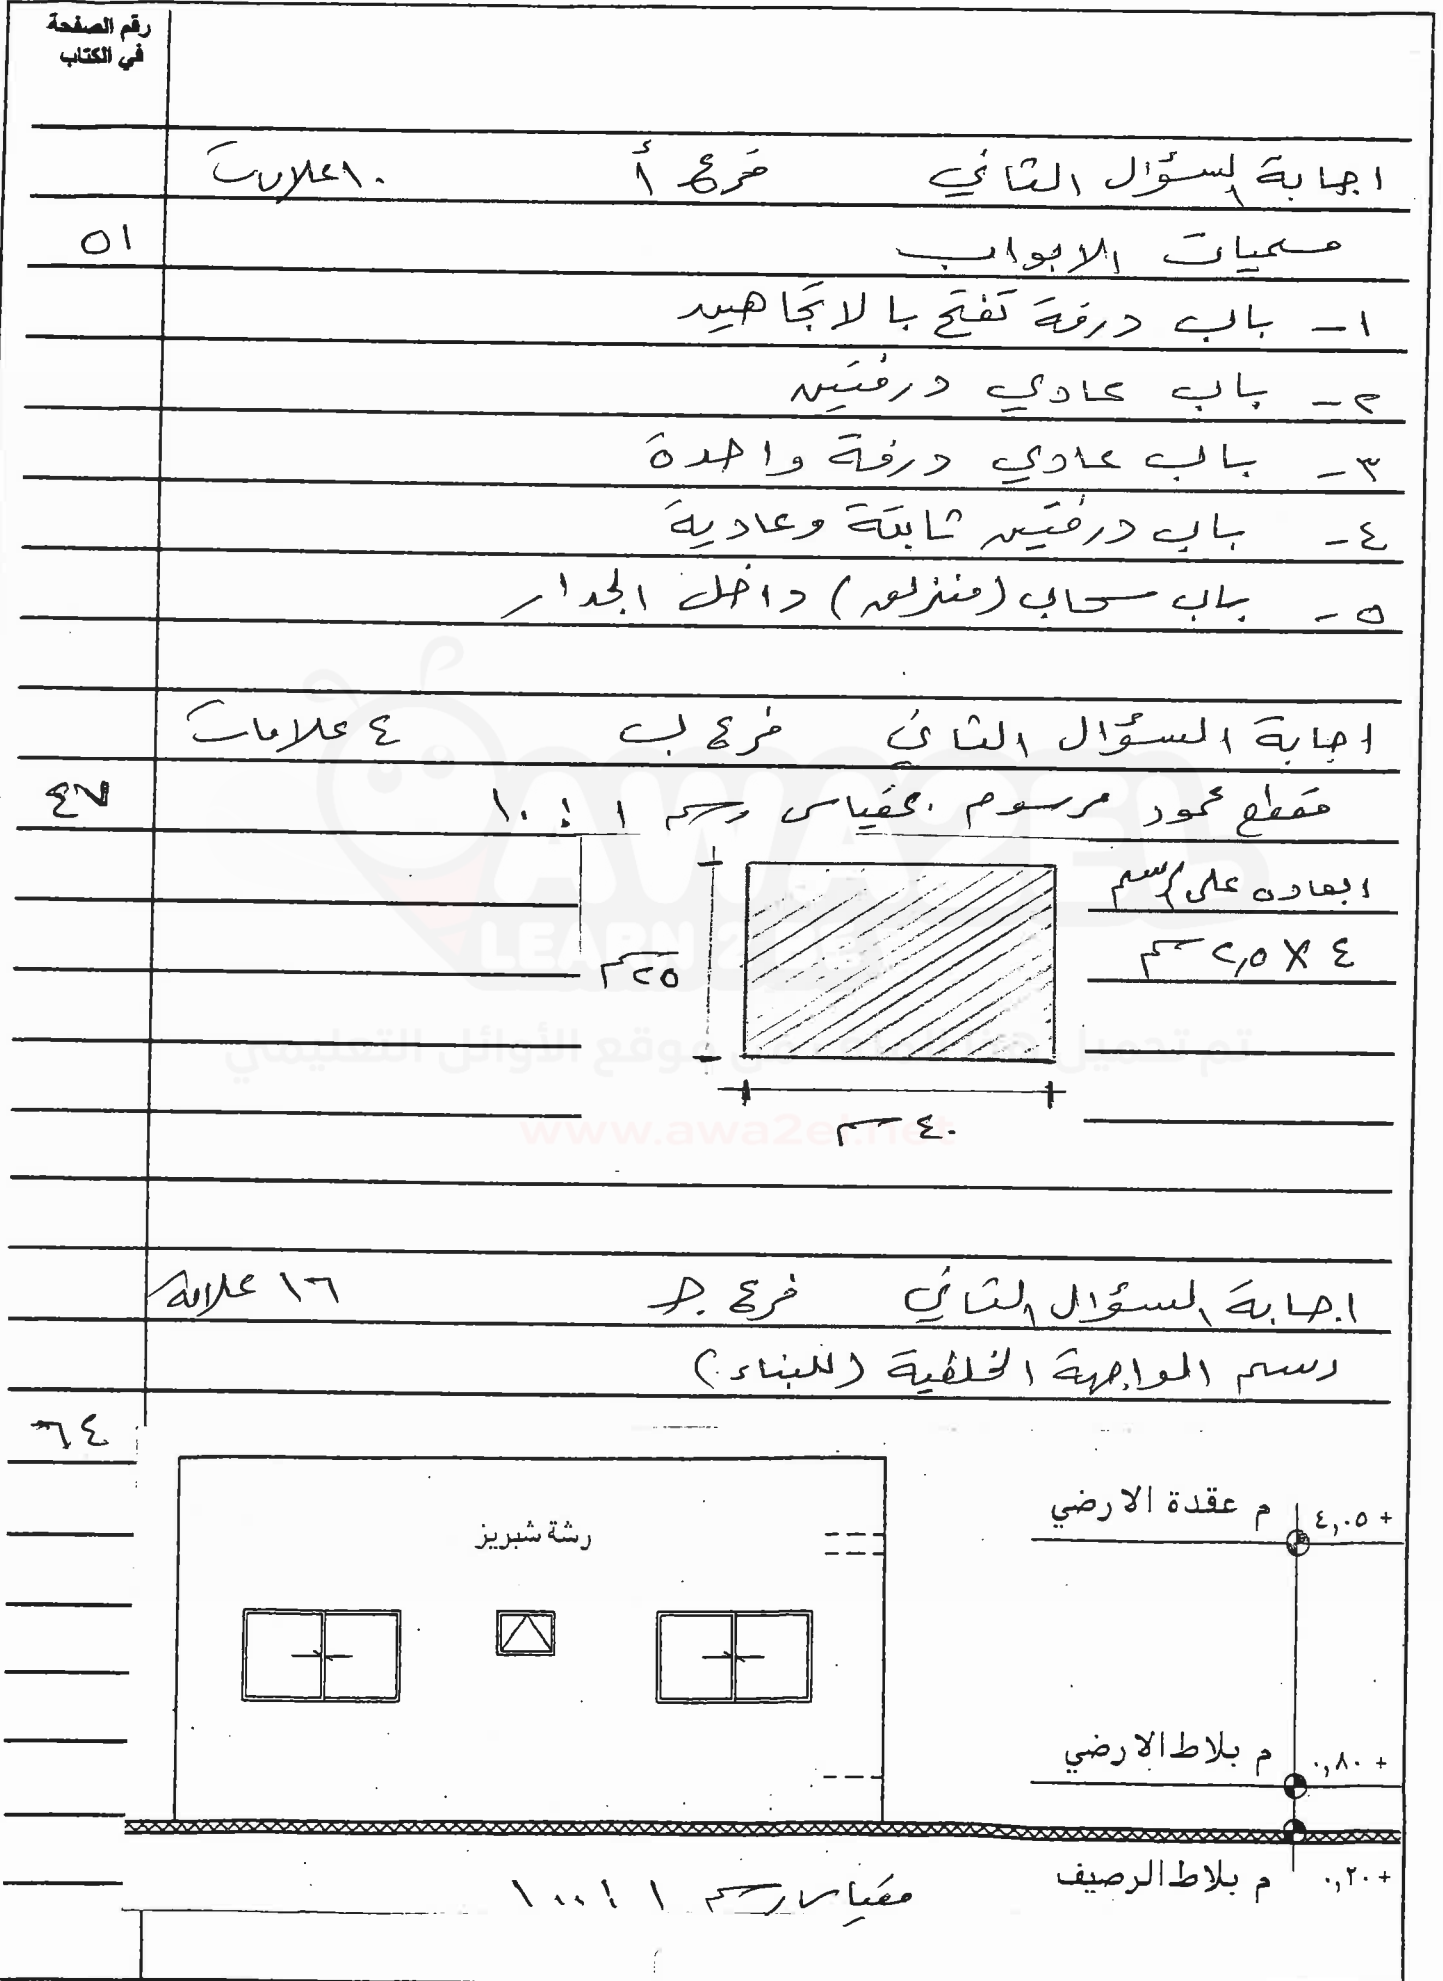 رقم الصفحة
في الكتاب
اجابة السؤال الثاني فرع أ ١٠ علامات
مسميات الابواب ٥١
١- باب درفة تفتح بالاتجاهين
٢- باب عادي درفتين
٣- باب عادي درفة واحدة
٤- باب درفتين ثابتة وعادية
٥- باب سحاب (منزلق) داخل الجدار
اجابة السؤال الثاني فرع ب ٤ علامات
مقطع عمود مرسوم بمقياس رسم ١ : ١٠ ٤٧
ابعاده على الرسم
٤ × ٢,٥ سم
٢٥ سم
٤٠ سم
AWA2EL
LEARN 2 BE
تم تحميل هذا الملف من موقع الأوائل التعليمي
www.awa2el.net
اجابة السؤال الثاني فرع جـ ١٦ علامة
رسم الواجهة الخلفية (للبناء)
٦٤
م عقدة الارضي + ٤,٠٥
رشة شبريز
م بلاط الارضي + ٠,٨٠
م بلاط الرصيف + ٠,٢٠
مقياس رسم ١ : ١٠٠